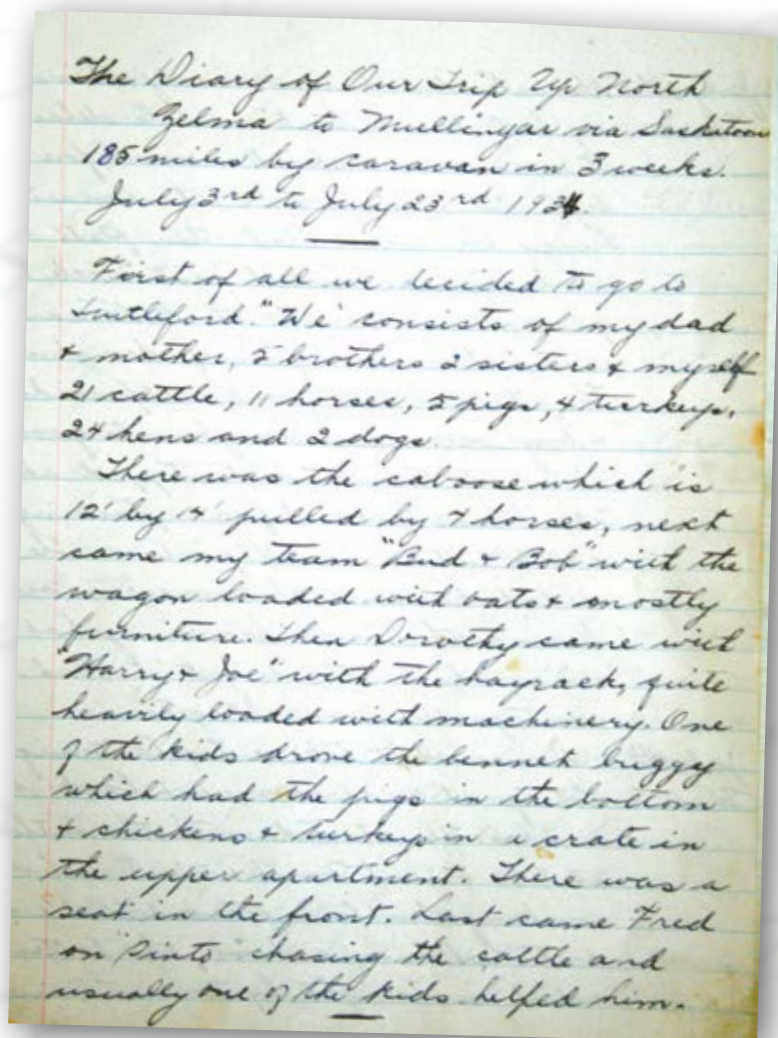 The Diary of Our Trip Up North
Zelma to Mullingar via Saskatoon
185 miles by caravan in 3 weeks.
July 3rd to July 23rd 1934.
First of all we decided to go to
Turtleford. "We" consists of my dad
+ mother, 5 brothers 2 sisters + myself
21 cattle, 11 horses, 5 pigs, 4 turkeys,
24 hens and 2 dogs.
There was the caboose which is
12' by 14' pulled by 4 horses, next
came my team "Bud + Bob" with the
wagon loaded with oats + mostly
furniture. Then Dorothy came with
"Harry + Joe" with the hayrack, quite
heavily loaded with machinery. One
of the kids drove the bennet buggy
which had the pigs in the bottom
+ chickens + turkeys in a crate in
the upper apartment. There was a
seat in the front. Last came Fred
on "Pinto" chasing the cattle and
usually one of the kids helped him.